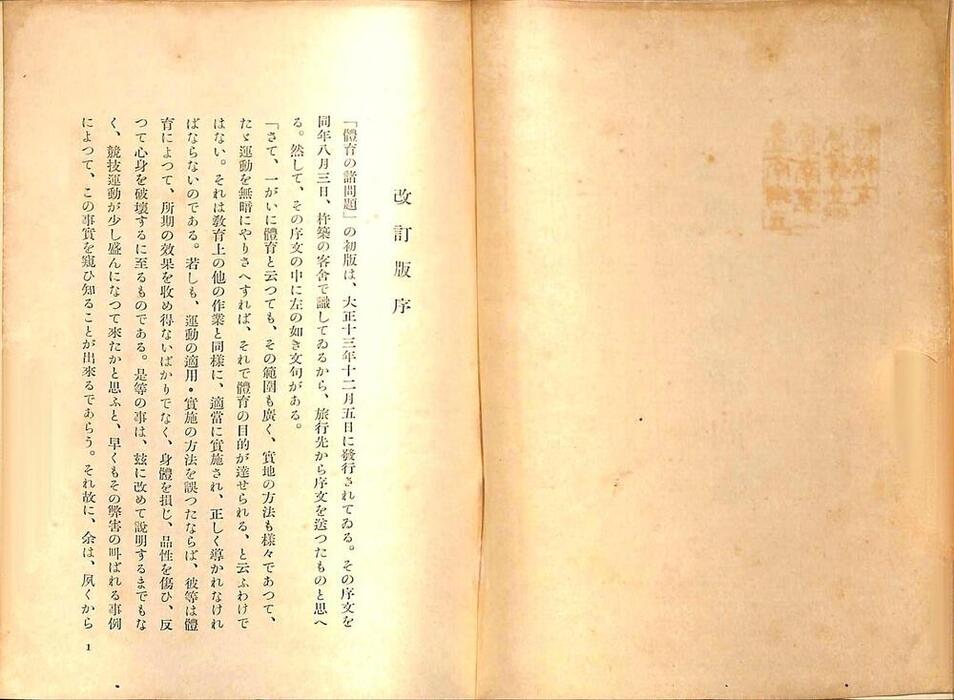 改訂版序
「體育の諸問題」の初版は、大正十三年十二月五日に發行されてゐる。その序文を
同年八月三日、杵築の客舍で識してゐるから、旅行先から序文を送つたものと思へ
る。然して、その序文の中に左の如き文句がある。
「さて、一がいに體育と云つても、その範圍も廣く、實地の方法も樣々であつて、
たゞ運動を無暗にやりさへすれば、それで體育の目的が達せられる、と云ふわけで
はない。それは敎育上の他の作業と同樣に、適當に實施され、正しく導かれなけれ
ばならないのである。若しも、運動の適用・實施の方法を誤つたならば、彼等は體
育によつて、所期の效果を收め得ないばかりでなく、身體を損じ、品性を傷ひ、反
つて心身を破壞するに至るものである。是等の事は、玆に改めて說明するまでもな
く、競技運動が少し盛んになつて來たかと思ふと、早くもその弊害の叫ばれる事例
によつて、この事實を窺ひ知ることが出來るであらう。それ故に、余は、夙くから
1